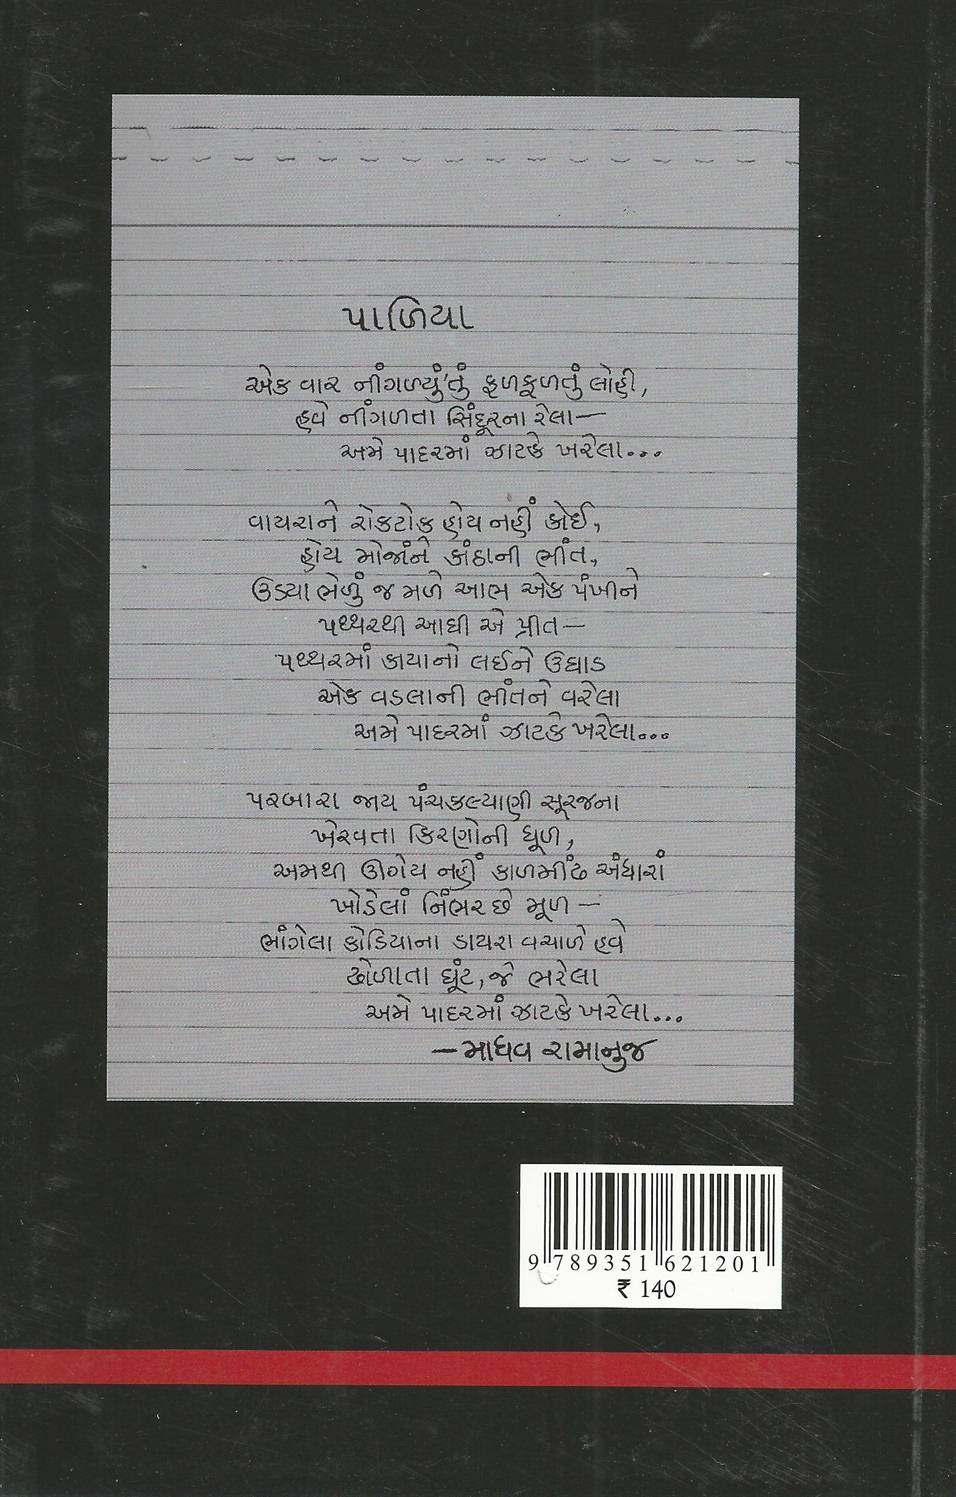 પાળિયા
એક વાર નીંગળ્યું'તું ફળફળતું લોહી,
હવે નીંગળતા સિંદૂરના રેલા—
અમે પાદરમાં ઝાટકે ખરેલા...
વાયરાને રોકટોક હોય નહીં કોઈ,
હોય મોજાંને કાંઠાની ભીંત,
ઉડ્યા ભેળું જ મળે આભ એક પંખીને
પથ્થરથી આઘી એ પ્રીત—
પથ્થરમાં કાયાનો લઈને ઉઘાડ
એક વડલાની ભીંતને વરેલા
અમે પાદરમાં ઝાટકે ખરેલા...
પરબારા જાય પંચકલ્યાણી સૂરજના
ખેરવતા કિરણોની ધૂળ,
અમથી ઊગેય નહીં કાળમીંઢ અંધારાં
ખોડેલાં નિંભર છે મૂળ —
ભાંગેલા કોડિયાના ડાયરા વચાળે હવે
ઢોળાતા ઘૂંટ, જે ભરેલા
અમે પાદરમાં ઝાટકે ખરેલા...
—માધવ રામાનુજ
9 789351 621201
₹ 140